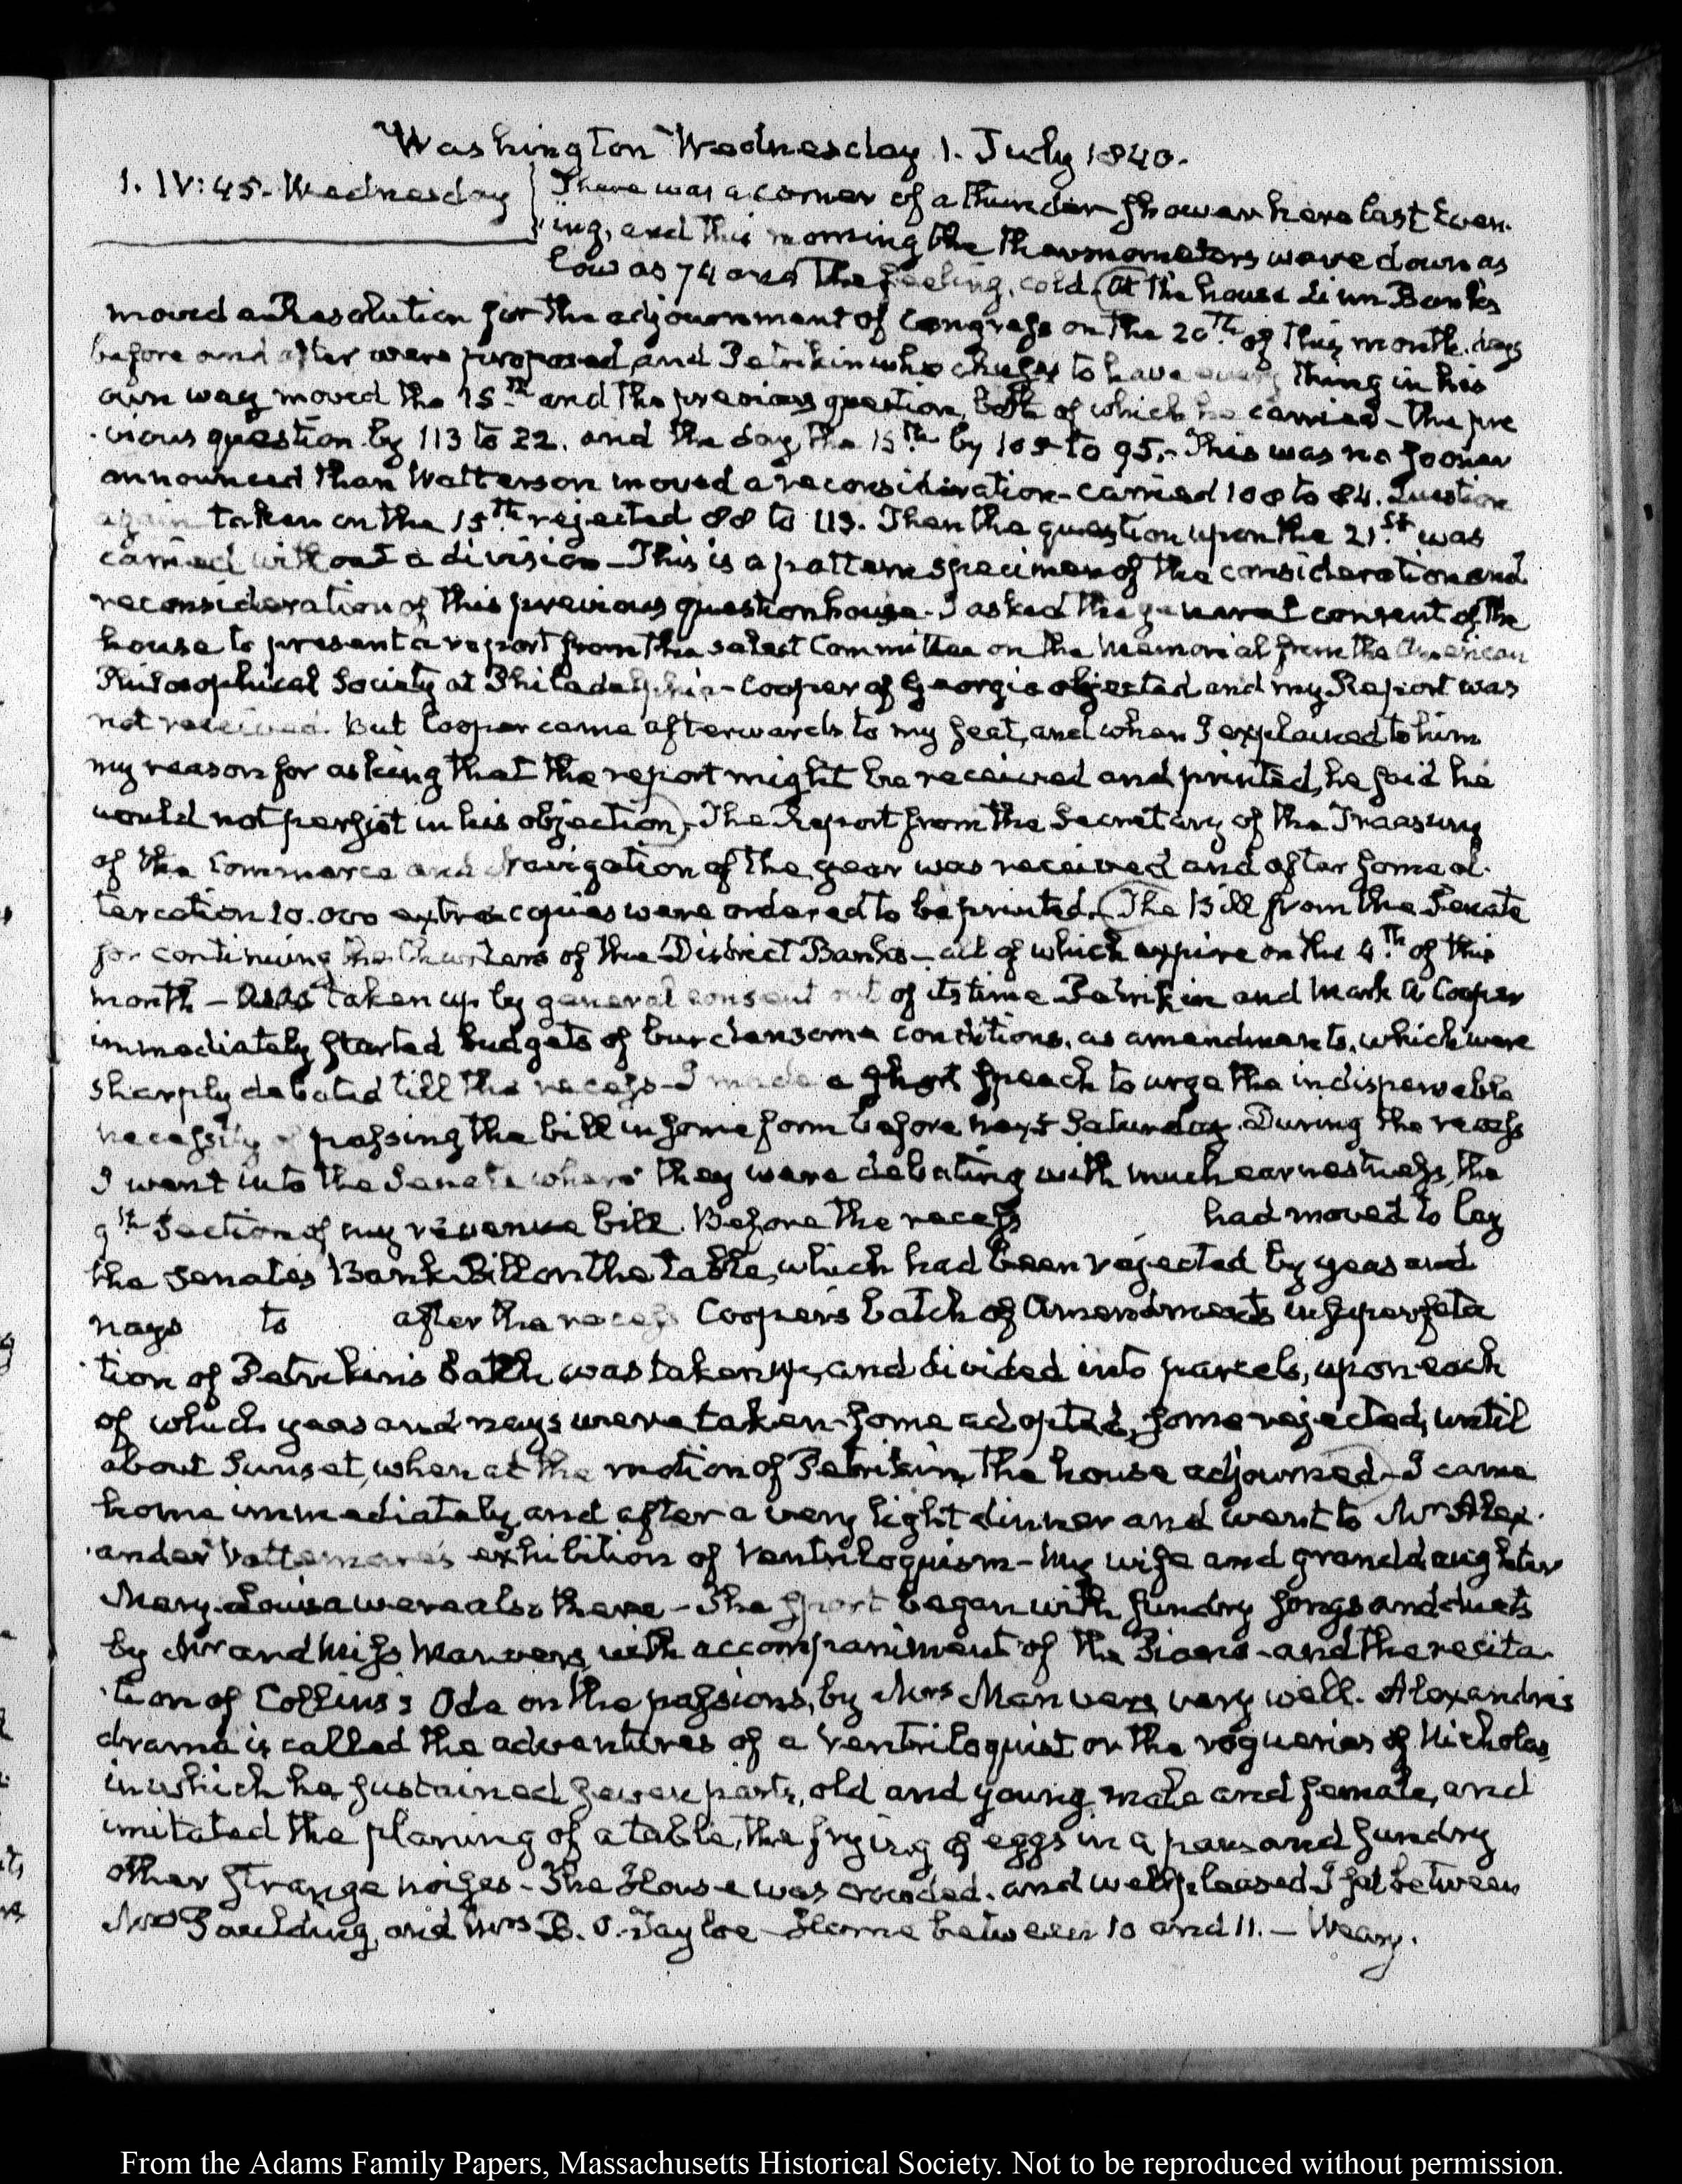 Washington Wednesday 1. July 1840.
1. IV:45. Wednesday
There was a corner of a thunder shower here last Even-
ing, and this morning the thermometers were down as
low as 74 and the feeling, cold. (At the house Linn Banks
moved a Resolution for the adjournment of Congress on the 20th. of this month. days
before and after were proposed, and Petrikin who chuses to have every thing in his
own way moved the 15th. and the previous question, both of which he carried – the pre
vious question by 113 to 22. and the day, the 15th. by 105 to 95. – This was no sooner
announced than Watterson moved a reconsideration – carried 108 to 84. Question
again taken on the 15th. rejected 88 to 113. Then the question upon the 21st. was
carried without a division – This is a pattern specimen of the consideration and
reconsideration of this previous question house – I asked the general consent of the
house to present a report from the select Committee on the Memorial from the American
Philosophical Society at Philadelphia – Cooper of Georgia objected and my Report was
not received. But Cooper came afterwards to my seat, and when I explained to him
my reason for asking that the report might be received and printed, he said he
would not persist in his objection) – The Report from the Secretary of the Treasury
of the Commerce and Navigation of the year was received and after some al-
tercation 10.000 extra copies were ordered to be printed. (The Bill from the Senate
for continuing the Charters of the District Banks – all of which expire on the 4th. of this
month – was taken up by general consent out of its time Petrikin and Mark A Cooper
immediately started budgets of burdensome conditions, as amendments, which were
sharply debated till the recess – I made a short speech to urge the indispensable
necessity of passing the bill in some form before next Saturday. During the recess
I went into the Senate where they were debating with much earnestness, the
9th Section of my revenue bill. Before the recess had moved to lay
the Senate's Bank Bill on the table, which had been rejected by yeas and
nays to after the recess Cooper's batch of Amendments in superfeta
tion of Petrikin's batch was taken up, and divided into parcels, upon each
of which yeas and nays were taken – some adopted, some rejected, until
about Sunset, when at the motion of Petrikin, the house adjourned) – I came
home immediately, and after a very light dinner and went to Mr Alex-
ander Vattemare's exhibition of Ventriloquism – My wife and granddaughter
Mary-Louisa were also there – The sport began with sundry songs and duets
by Mr and Miss Manvers, with accompaniment of the Piano – and the recita-
tion of Collins's Ode on the passions, by Mrs Manvers, very well. Alexandre's
drama is called the adventures of a Ventriloquist or the rogueries of Nicholas,
in which he sustained seven parts, old and young, male and female, and
imitated the planing of a table, the frying of eggs in a pan and sundry
other strange noises – The House was crowded. and well pleased I sat between
Mrs Paulding, and Mrs B. O. Tayloe – Home between 10 and 11. – Weary.
From the Adams Family Papers, Massachusetts Historical Society. Not to be reproduced without permission.